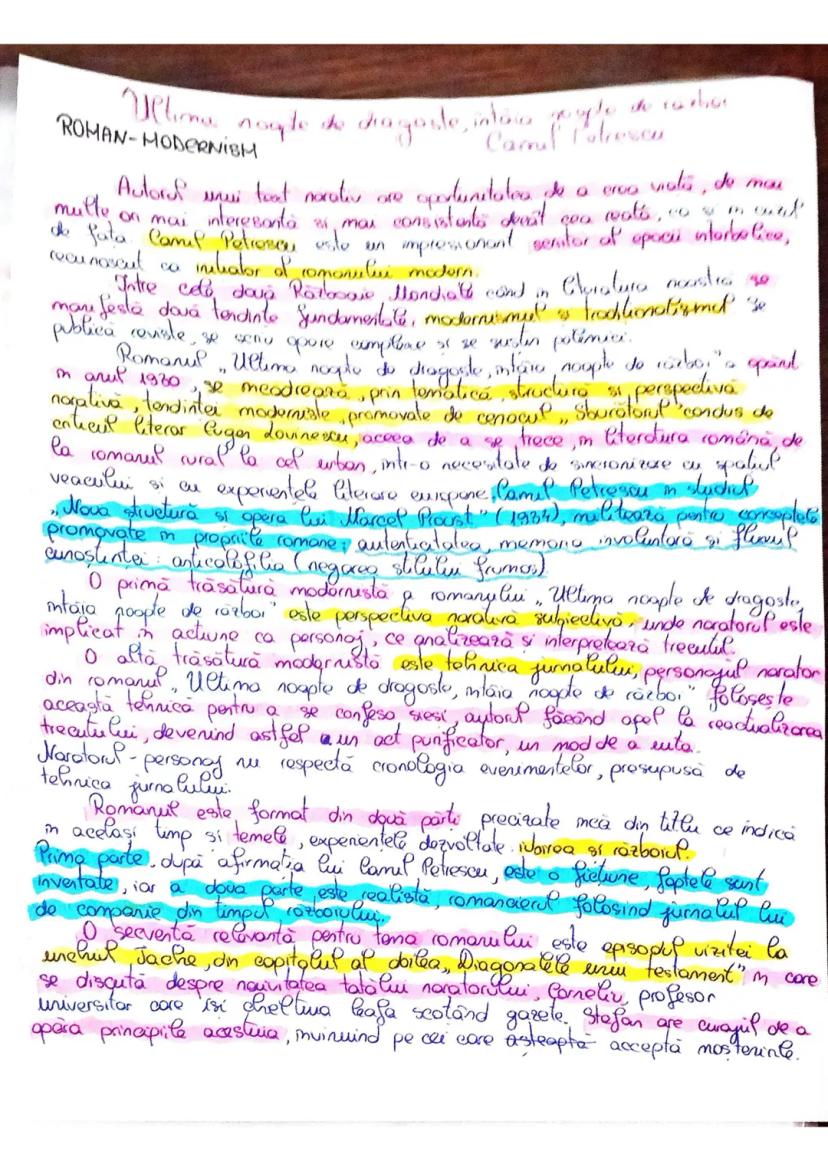 Ultima noapte de dragoste, întâia noapte de război
ROMAN-MODERNISM
Camil Petrescu
Autorul unui text narativ are oportunitatea de a crea viață, de mai
multe ori mai interesantă și mai consistentă decât cea reală, ca și în cazul
de față. Camil Petrescu este un impresionant scriitor al epocii interbelice,
recunoscut ca inițiator al romanului modern.
Între cele două Războaie Mondiale când în literatura noastră se
manifestă două tendințe fundamentale, modernismul și tradiționalismul se
publică reviste, se scriu opere ample și se susțin polemici.
Romanul „Ultima noapte de dragoste, întâia noapte de război" a apărut
în anul 1930, se încadrează, prin tematică, structură și perspectivă
narativă, tendinței moderniste, promovate de cenaclul „Sburătorul" condus de
criticul literar Eugen Lovinescu, aceea de a se trece, în literatura română, de
la romanul rural la cel urban, într-o necesitate de sincronizare cu spațiul
veacului și cu experiențele literare europene. Camil Petrescu în studiul
„Noua structură și opera lui Marcel Proust" (1934), militează pentru conceptele
promovate în propriile romane: autenticitatea, memoria involuntară și fluxul
cunoștinței: anticalofilia (negarea stilului frumos)
O primă trăsătură modernistă a romanului „Ultima noapte de dragoste,
întâia noapte de război" este perspectiva narativă subiectivă, unde naratorul este
implicat în acțiune ca personaj, ce analizează și interpretează trecutul.
O altă trăsătură modernistă este tehnica jurnalului, personajul narator
din romanul „Ultima noapte de dragoste, întâia noapte de război" folosește
această tehnică pentru a se confesa sieși, autorul făcând apel la reactualizarea
trecutului, devenind astfel un act purificator, un mod de a
Naratorul-personaj nu respectă cronologia evenimentelor, presupusă de
tehnica jurnalului.
Romanul este format din două părți precizate încă din titlu ce indică
în același timp și temele, experiențele dezvoltate iubirea și războiul.
Prima parte, după afirmația lui Camil Petrescu, este o ficțiune, faptele sunt
inventate, iar a doua parte este realistă, romancierul folosind jurnalul lui
de companie din timpul războiului.
O secvență relevantă pentru tema romanului este episodul vizitei la
unchiul Tache, din capitolul al doilea, „Diagonalele unui testament" în care
se discută despre naivitatea tatălui naratorului, Corneliu, profesor
universitar care își cheltuia leafa scotând gazete. Ștefan are curajul de a
apăra principiile acestuia, învinuind pe cei care așteaptă acceptă moștenirile.